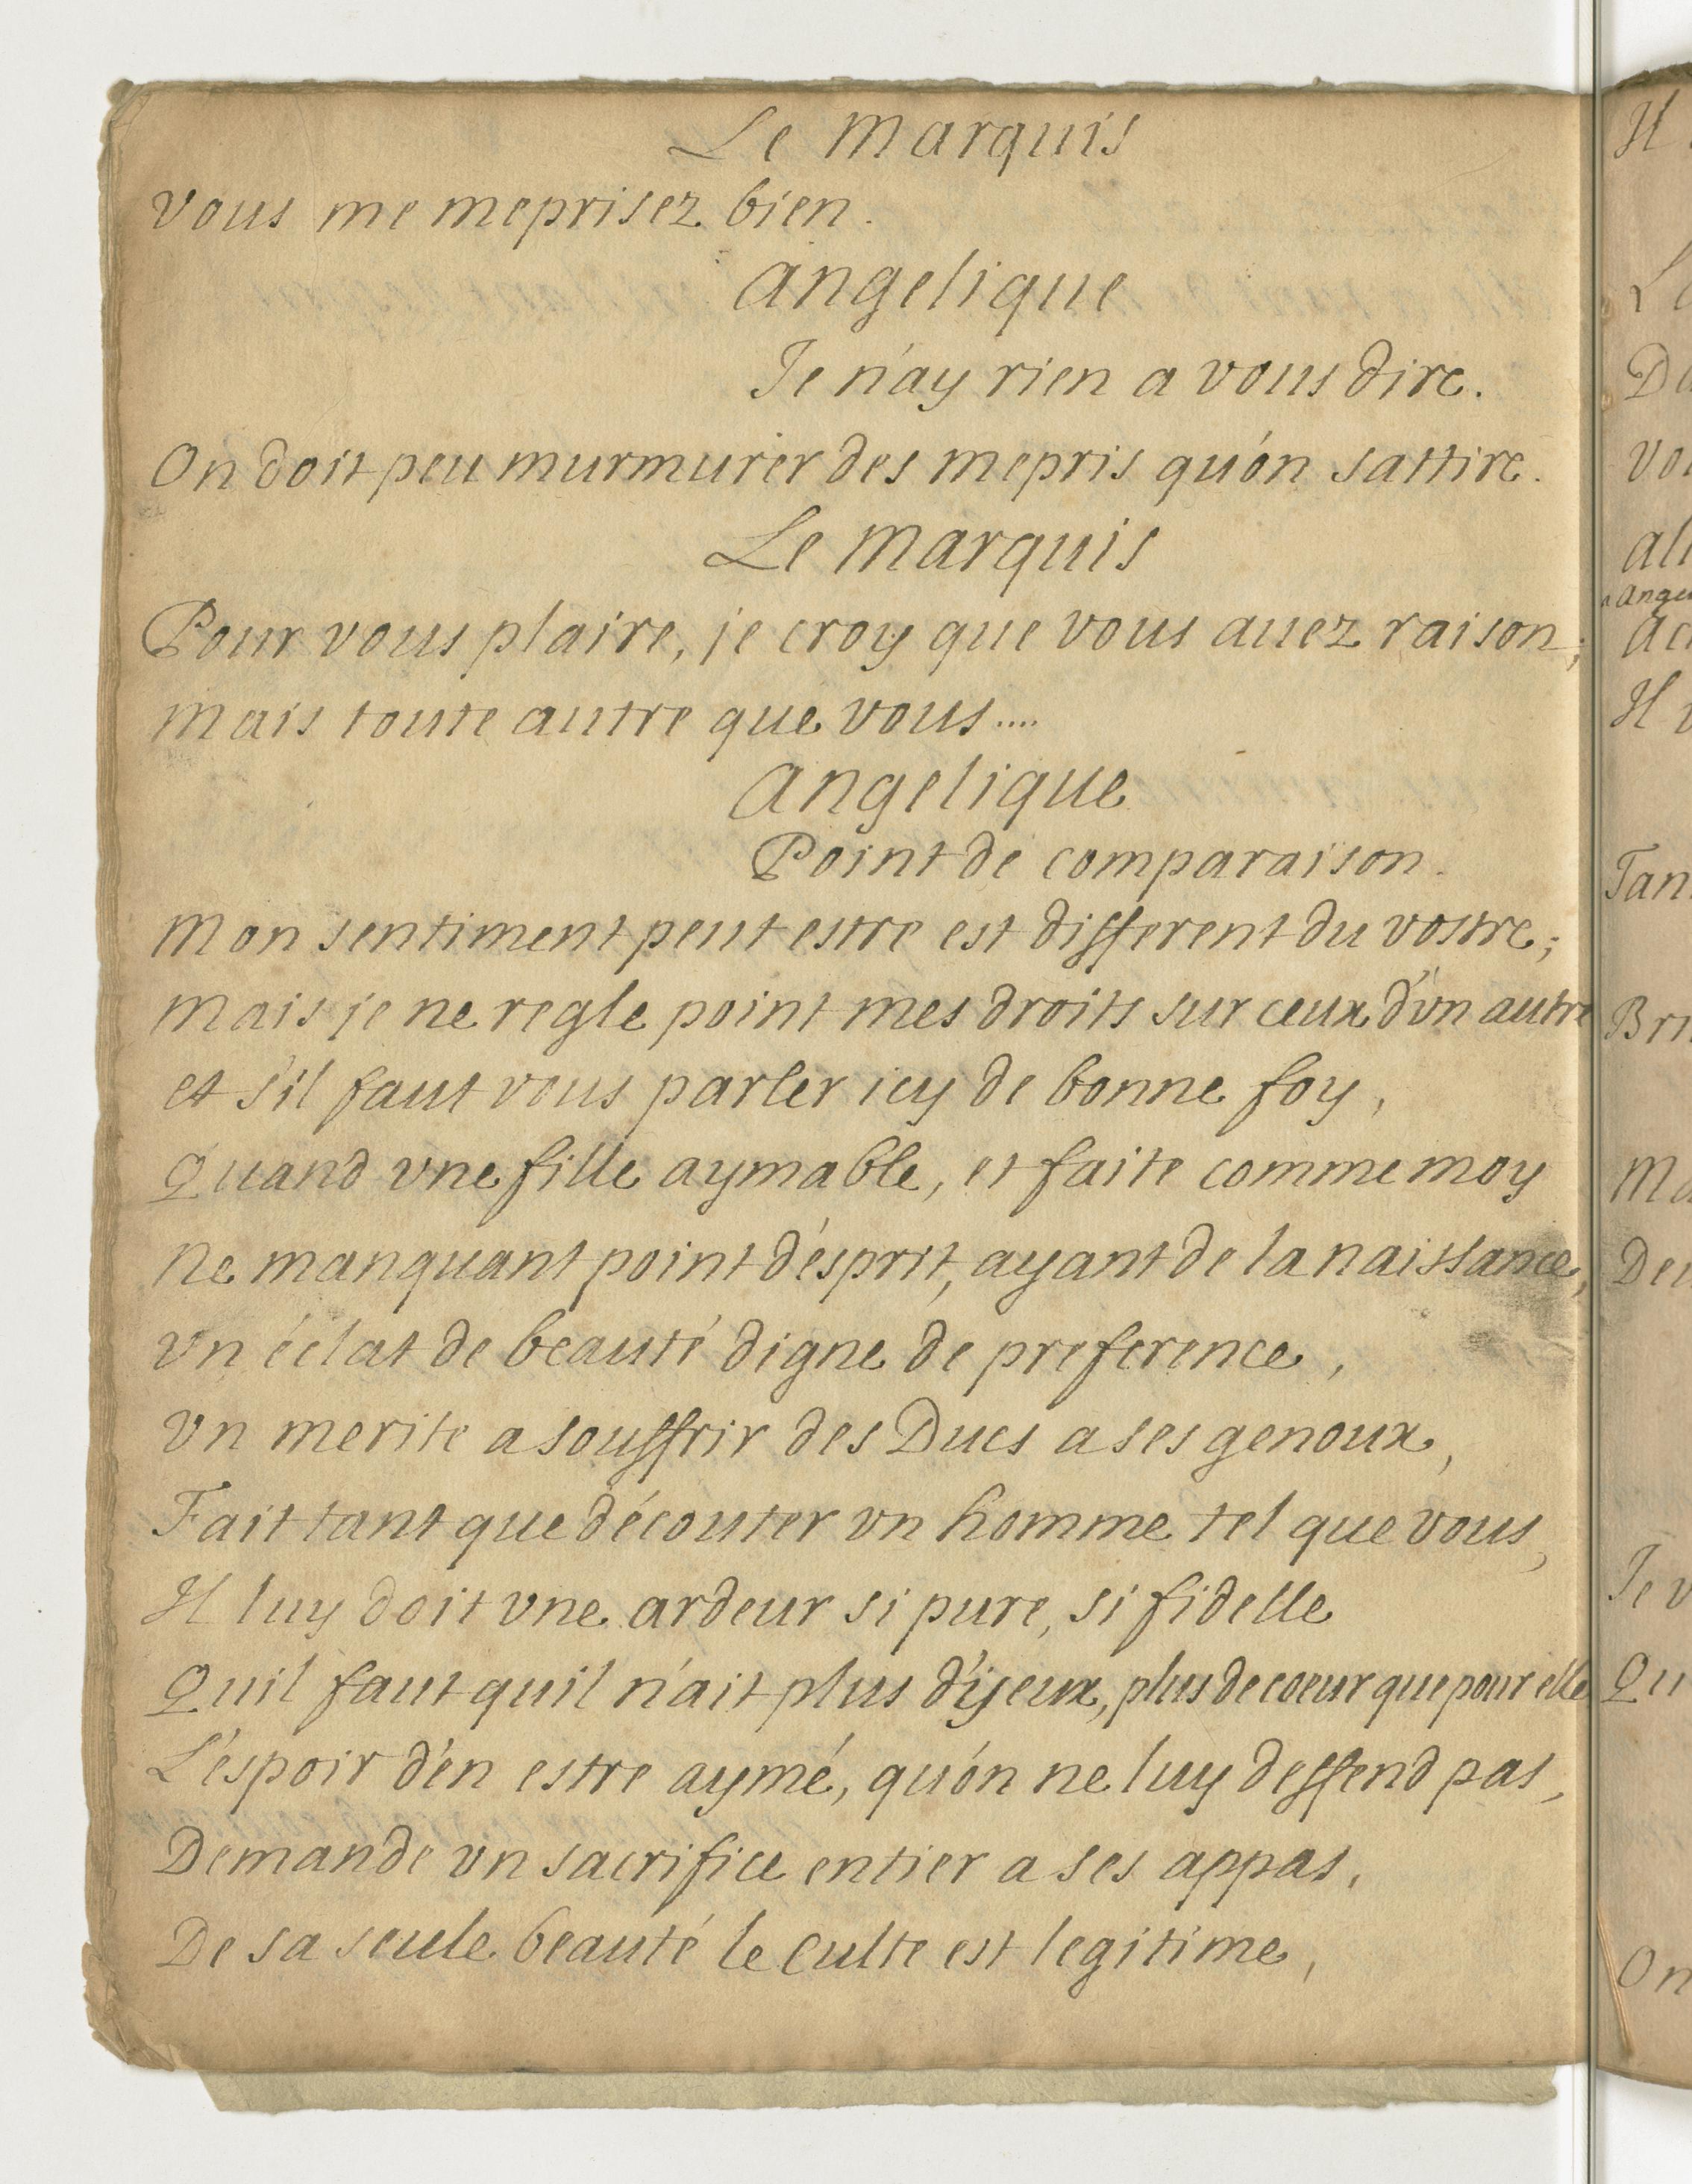 Le Marquis
vous me meprisez bien.
Angelique
Je n'ay rien a vous dire.
On doit peu murmurer des mepris qu'on sattire.
Le Marquis
Pour vous plaire, je croy que vous auez raison;
Mais toute autre que vous....
Angelique
Point de comparaison.
Mon sentiment peut estre est different du vostre;
Mais je ne regle point mes droits sur ceux d'vn autre
et s'il faut vous parler icy de bonne foy,
Quand vne fille aymable, et faite comme moy
Ne manquant point d'esprit, ayant de la naissance,
vn éclat de beauté digne de preference,
vn merite a souffrir des Ducs a ses genoux,
Fait tant que d'écouter vn homme tel que vous,
Il luy doit vne ardeur si pure, si fidelle
Quil faut quil n'ait plus d'yeux, plus de coeur que pour elle
L'éspoir d'en estre aymé, qu'on ne luy deffend pas,
Demande vn sacrifice entier a ses appas,
De sa seule beauté le culte est legitime,